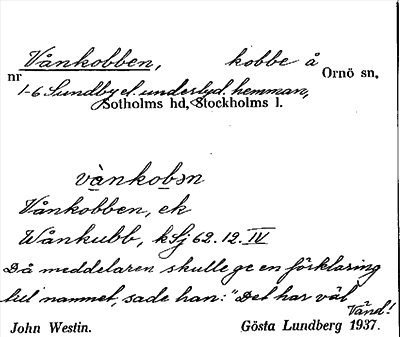 Vånkobben, kobbe å
nr Ornö sn,
1-6 Sundby el. underlyd. hemman,
Sotholms hd, Stockholms l.
vȧnkobɔn
Vånkobben, ek
Wånkubb, kSj 62.12.IV
Då meddelaren skulle ge en förklaring
till namnet, sade han: "Det har väl
Vänd!
John Westin. Gösta Lundberg 1937.